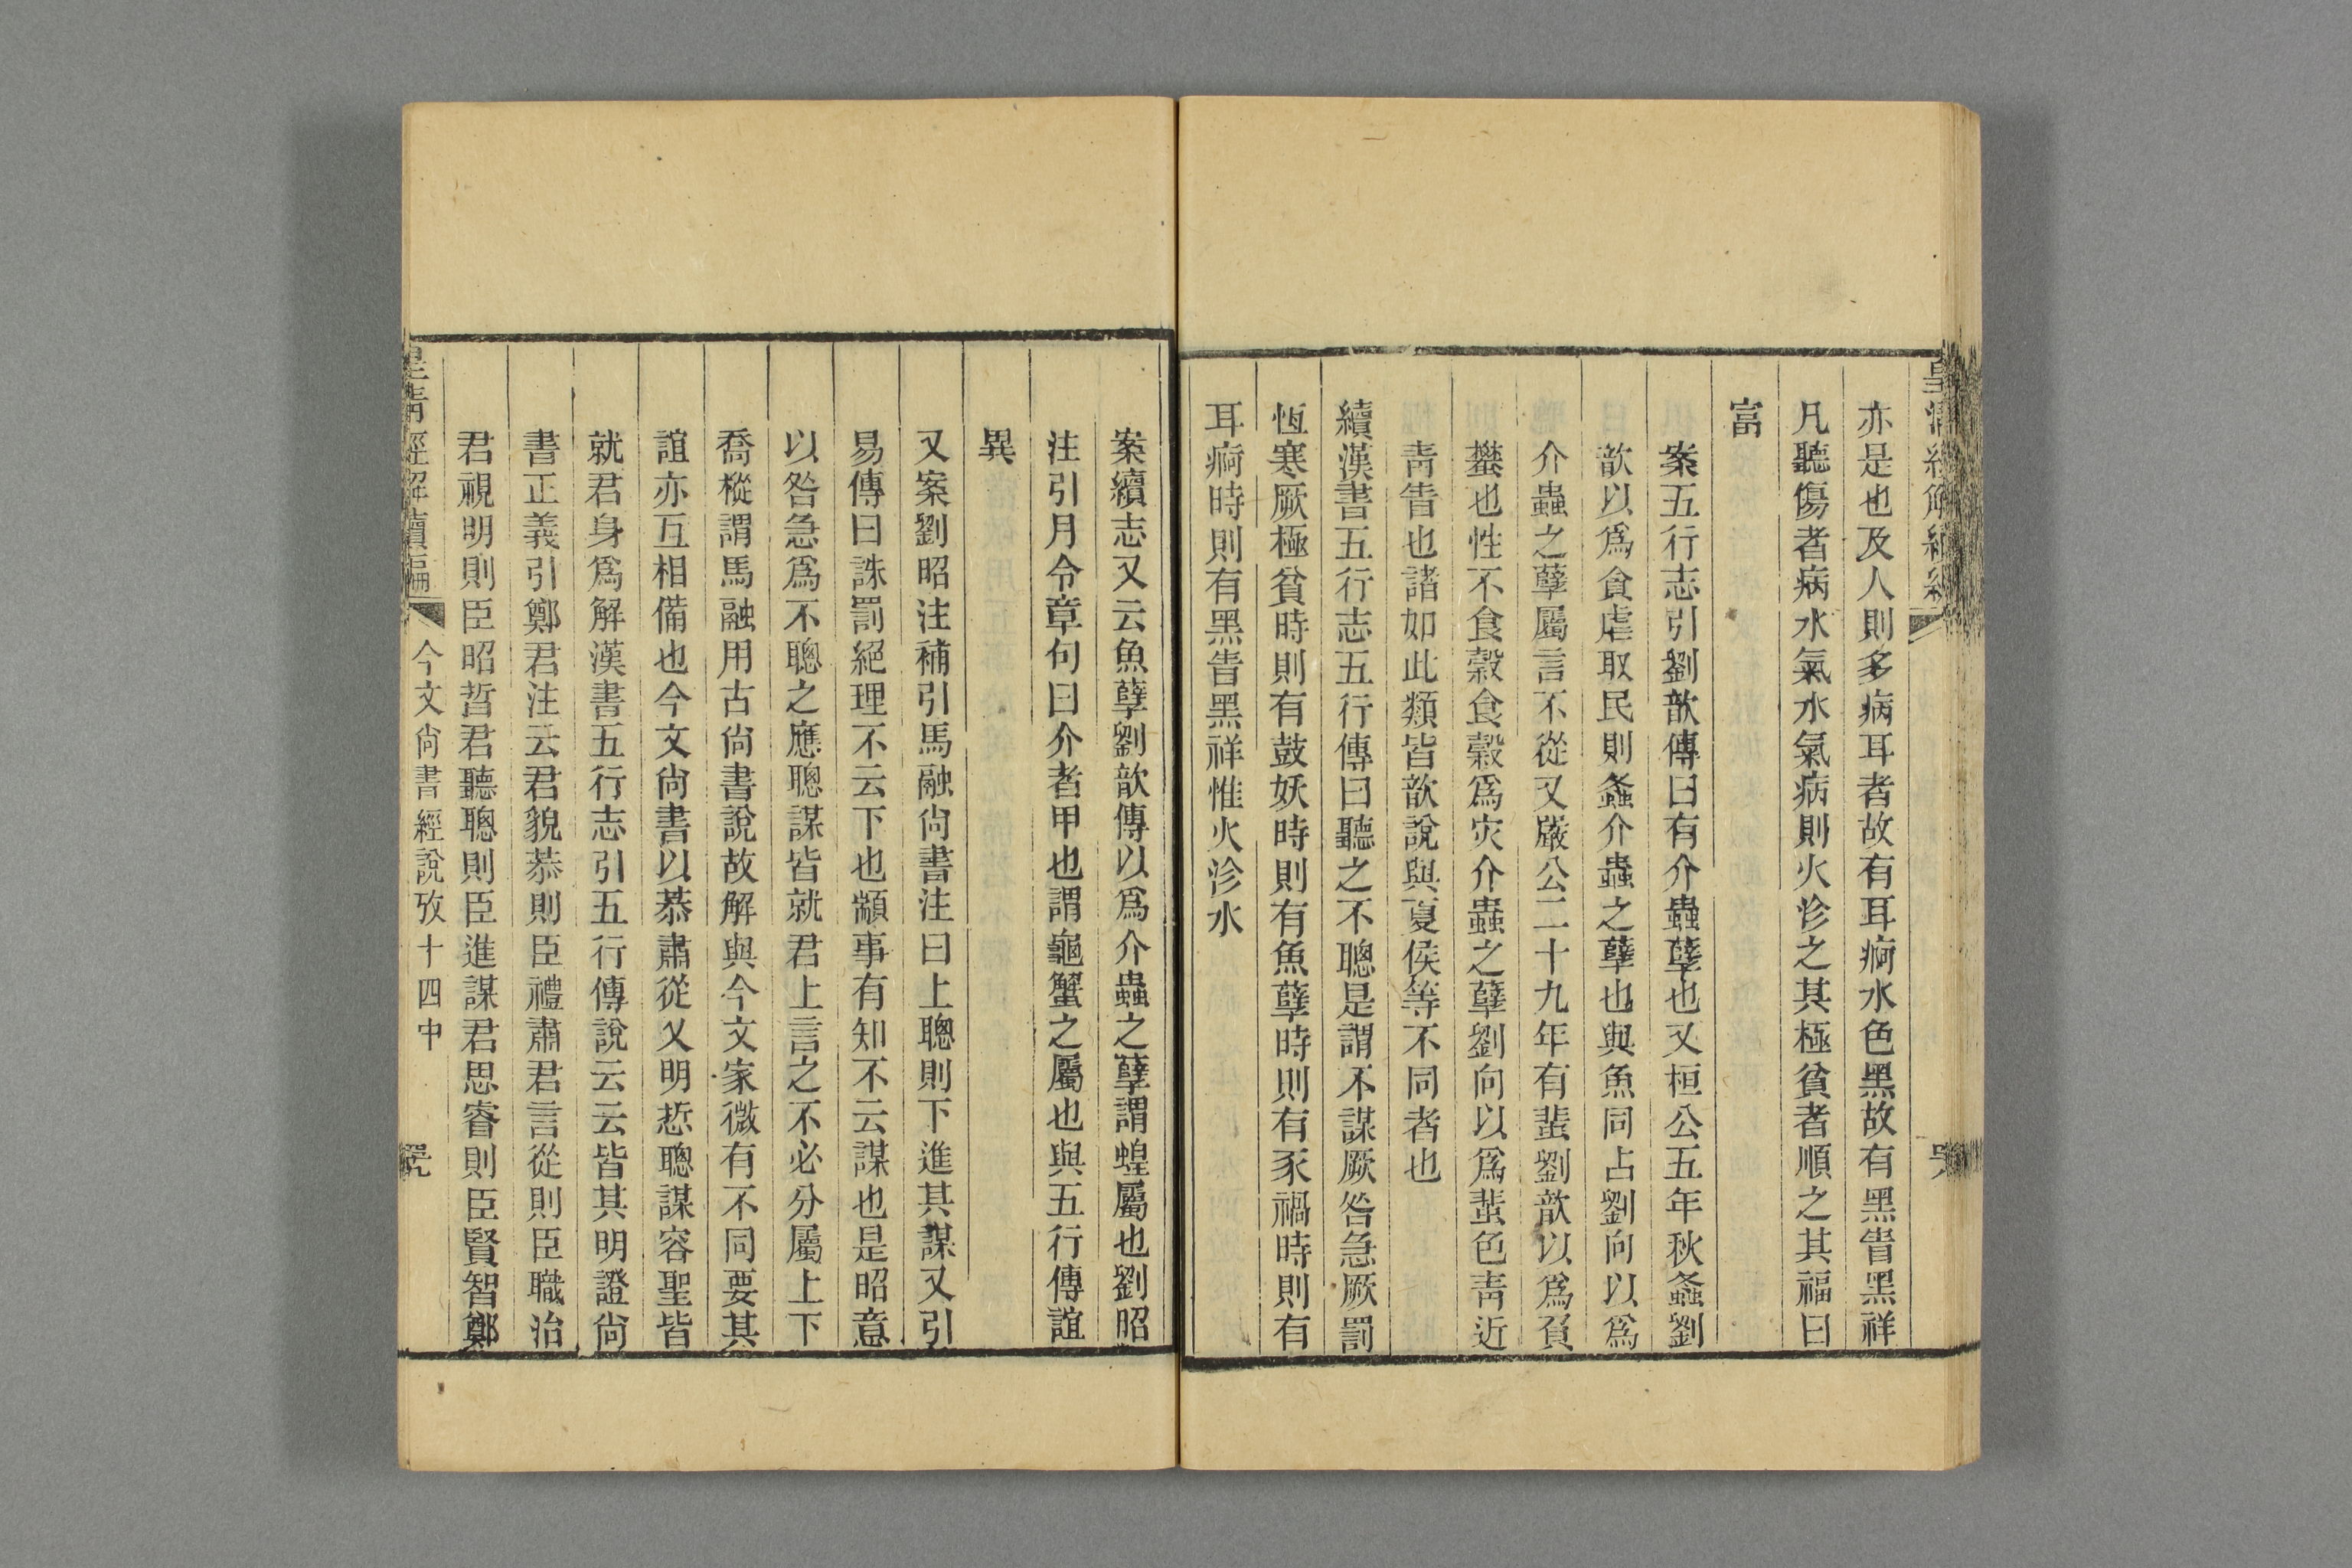 亦是也及人則多病耳者故有耳痾水色黑故有黑眚黑祥
凡聽傷者病水氣水氣病則火沴之其極貧者順之其福曰
富
案五行志引劉歆傳曰有介蟲孽也又桓公五年秋螽劉
歆以爲貪虐取民則螽介蟲之孽也與魚同占劉向以爲
介蟲之孽屬言不從又嚴公二十九年有蜚劉歆以爲負
蠜也性不食穀食穀爲灾介蟲之孽劉向以爲蜚色青近
青眚也諸如此類皆歆說與夏侯等不同者也
續漢書五行志五行傳曰聽之不聰是謂不謀厥咎急厥罰
恆寒厥極貧時則有鼓妖時則有魚孽時則有豕禍時則有
耳痾時則有黑眚黑祥惟火沴水
案續志又云魚孽劉歆傳以爲介蟲之孽謂蝗屬也劉昭
注引月令章句曰介者甲也謂龜蟹之屬也與五行傳誼
異
又案劉昭注補引馬融尙書注曰上聰則下進其謀又引
易傳曰誅罰絕理不云下也顓事有知不云謀也是昭意
以咎急爲不聰之應聰謀皆就君上言之不必分屬上下
喬樅謂馬融用古尙書說故解與今文家微有不同要其
誼亦互相備也今文尙書以恭肅從乂明悊聰謀容聖皆
就君身爲解漢書五行志引五行傳說云云皆其明證尙
書正義引鄭君注云君貌恭則臣禮肅君言從則臣職治
君視明則臣昭晢君聽聰則臣進謀君思睿則臣賢智鄭
皇清經解續編 今文尙書經說攷十四中